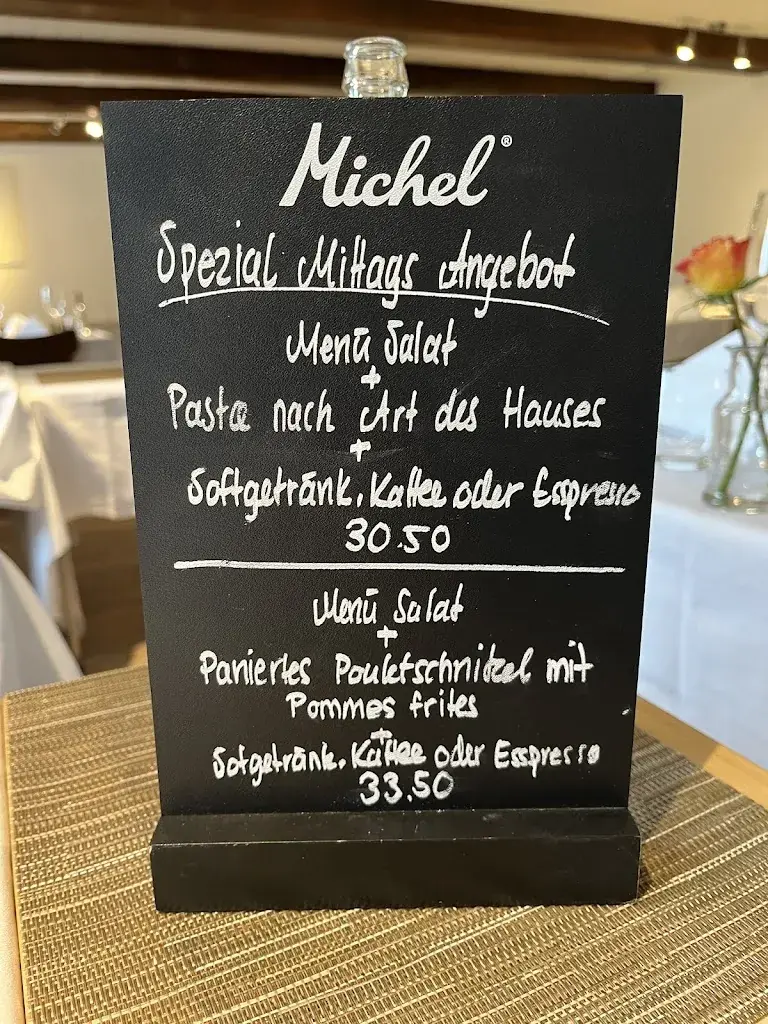 Michel®
Spezial Mittags Angebot
Menü Salat
+
Pasta nach Art des Hauses
+
Softgetränk, Kaffee oder Esspresso
30.50
Menü Salat
+
Paniertes Pouletschnitzel mit
Pommes frites
+
Sofgetränk, Kaffee oder Esspresso
33.50